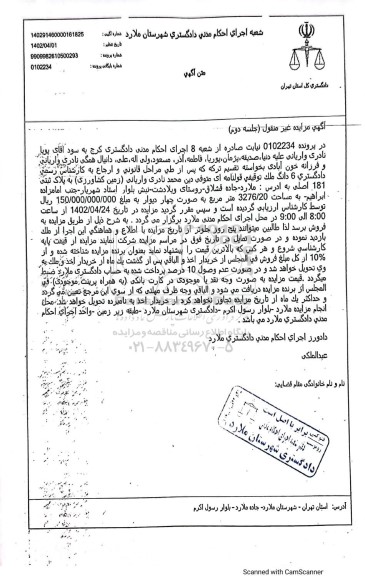 شعبه اجرای احکام مدنی دادگستری شهرستان ملارد
140291460000161825
تاریخ تنظیم : 1402/04/01
شماره پرونده : 9909982610500293
0102234
دادگستری کل استان تهران
متن آگهی
آگهی مزایده غیر منقول (جلسه دوم)
در پرونده 0102234 نیابت صادره از شعبه 8 اجرای احکام مدنی دادگستری کرج به سود آقای پویا
نادری واریانی علیه صدیقه,پژمان,پوریا, فاطمه,آذر, مسعود,ولی اله,علی, دانیال همگی نادری واریانی
و فرزانه خون آبادی بخواسته تقسیم ترکه که پس از طی مراحل قانونی و ارجاع به کارشناس رسمی
دادگستری 6 دانگ ملک توقیفی قولنامه ای متوفی دین محمد نادری واریانی (زمین کشاورزی) به پلاک ثبتی
181 اصلی به آدرس : ملارد-جاده قشلاق-روستای ویلادشت-نبش بلوار استاد شهریار-جنب امامزاده
ابراهیم- به مساحت 3276/20 متر مربع به صورت چهار دیوار به مبلغ 150/000/000/000 ریال
توسط کارشناس ارزیابی گردیده است و سپس مقرر گردید مزایده در تاریخ 1402/04/24 از ساعت
8:00 الی 9:00 در محل اجرای احکام مدنی دادگستری ملارد برگزار می گردد . به شرح ذیل از طریق مزایده به
فروش برسد لذا طالبین میتوانند پنج روز جلوتر از تاریخ مزایده با اطلاع و هماهنگی این اجرا از ملک
بازدید نموده و در صورت تمایل در تاریخ فوق در مراسم مزایده شرکت نمایند مزایده از قیمت پایه
کارشناسی شروع و هر کس که بالاترین قیمت را پیشنهاد نماید بعنوان برنده مزایده شناخته شده و از
10% از کل مبلغ فروش فی المجلس از خریدار اخذ و الباقی پس از گذشت یك ماه از خریدار اخذ و ملك به
وی تحویل خواهد شد و در صورت عدم وصول 10 درصد پرداخت شده به حساب دادگستری ملارد ضبط
میگردد .قیمت مزایده به صورت وجه نقد یا موجودی در کارت بانکی (به همراه پرینت موجودی) فی
المجلس از برنده مزایده دریافت می شود و الباقی وجه ظرف مهلتی که از سوی این مرجع تعیین می گردد
و حداکثر یك ماه از تاریخ مزایده تجاوز نخواهد کرد از خریدار اخذ به نامبرده تحویل خواهد شد. محل
انجام مزایده ملارد -بلوار رسول اکرم -دادگستری شهرستان ملارد -طبقه زیر زمین -واحد اجرای احکام
مدنی دادگستری ملارد می باشد .
پایگاه اطلاع رسانی مناقصه و مزایده
۰۲۱-۸۸۳۴۹۶۷۰-۵
دادورز اجرای احکام مدنی دادگستری ملارد
عبدالملکی
نام و نام خانوادگی مقام قضایی:
برابر با اصل است
دادگستری شهرستان ملارد
آدرس: استان تهران - شهرستان ملارد- جاده ملارد - بلوار رسول اکرم
Scanned with CamScanner